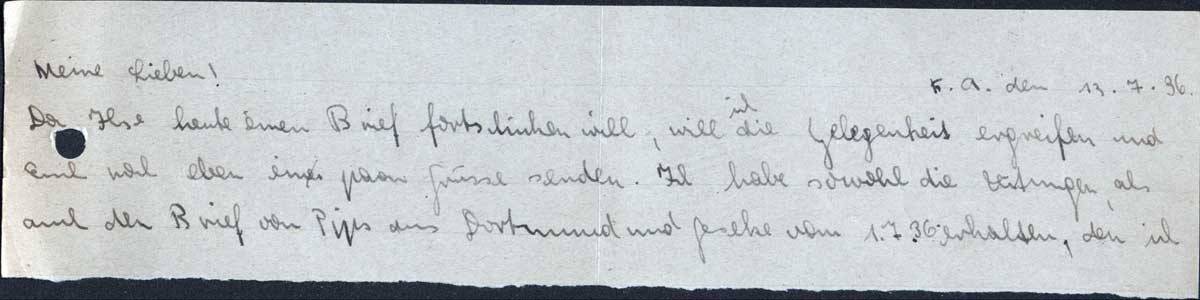 Meine Lieben!
F. A. den 13. 7. 36.
Da Ilse heute einen Brief fortschicken will, will ich die Gelegenheit ergreifen und
Euch noch eben ein paar Grüsse senden. Ich habe sowohl die Zeitungen, als
auch den Brief von Pips aus Dortmund und Geseke vom 1.7.36 erhalten, den ich